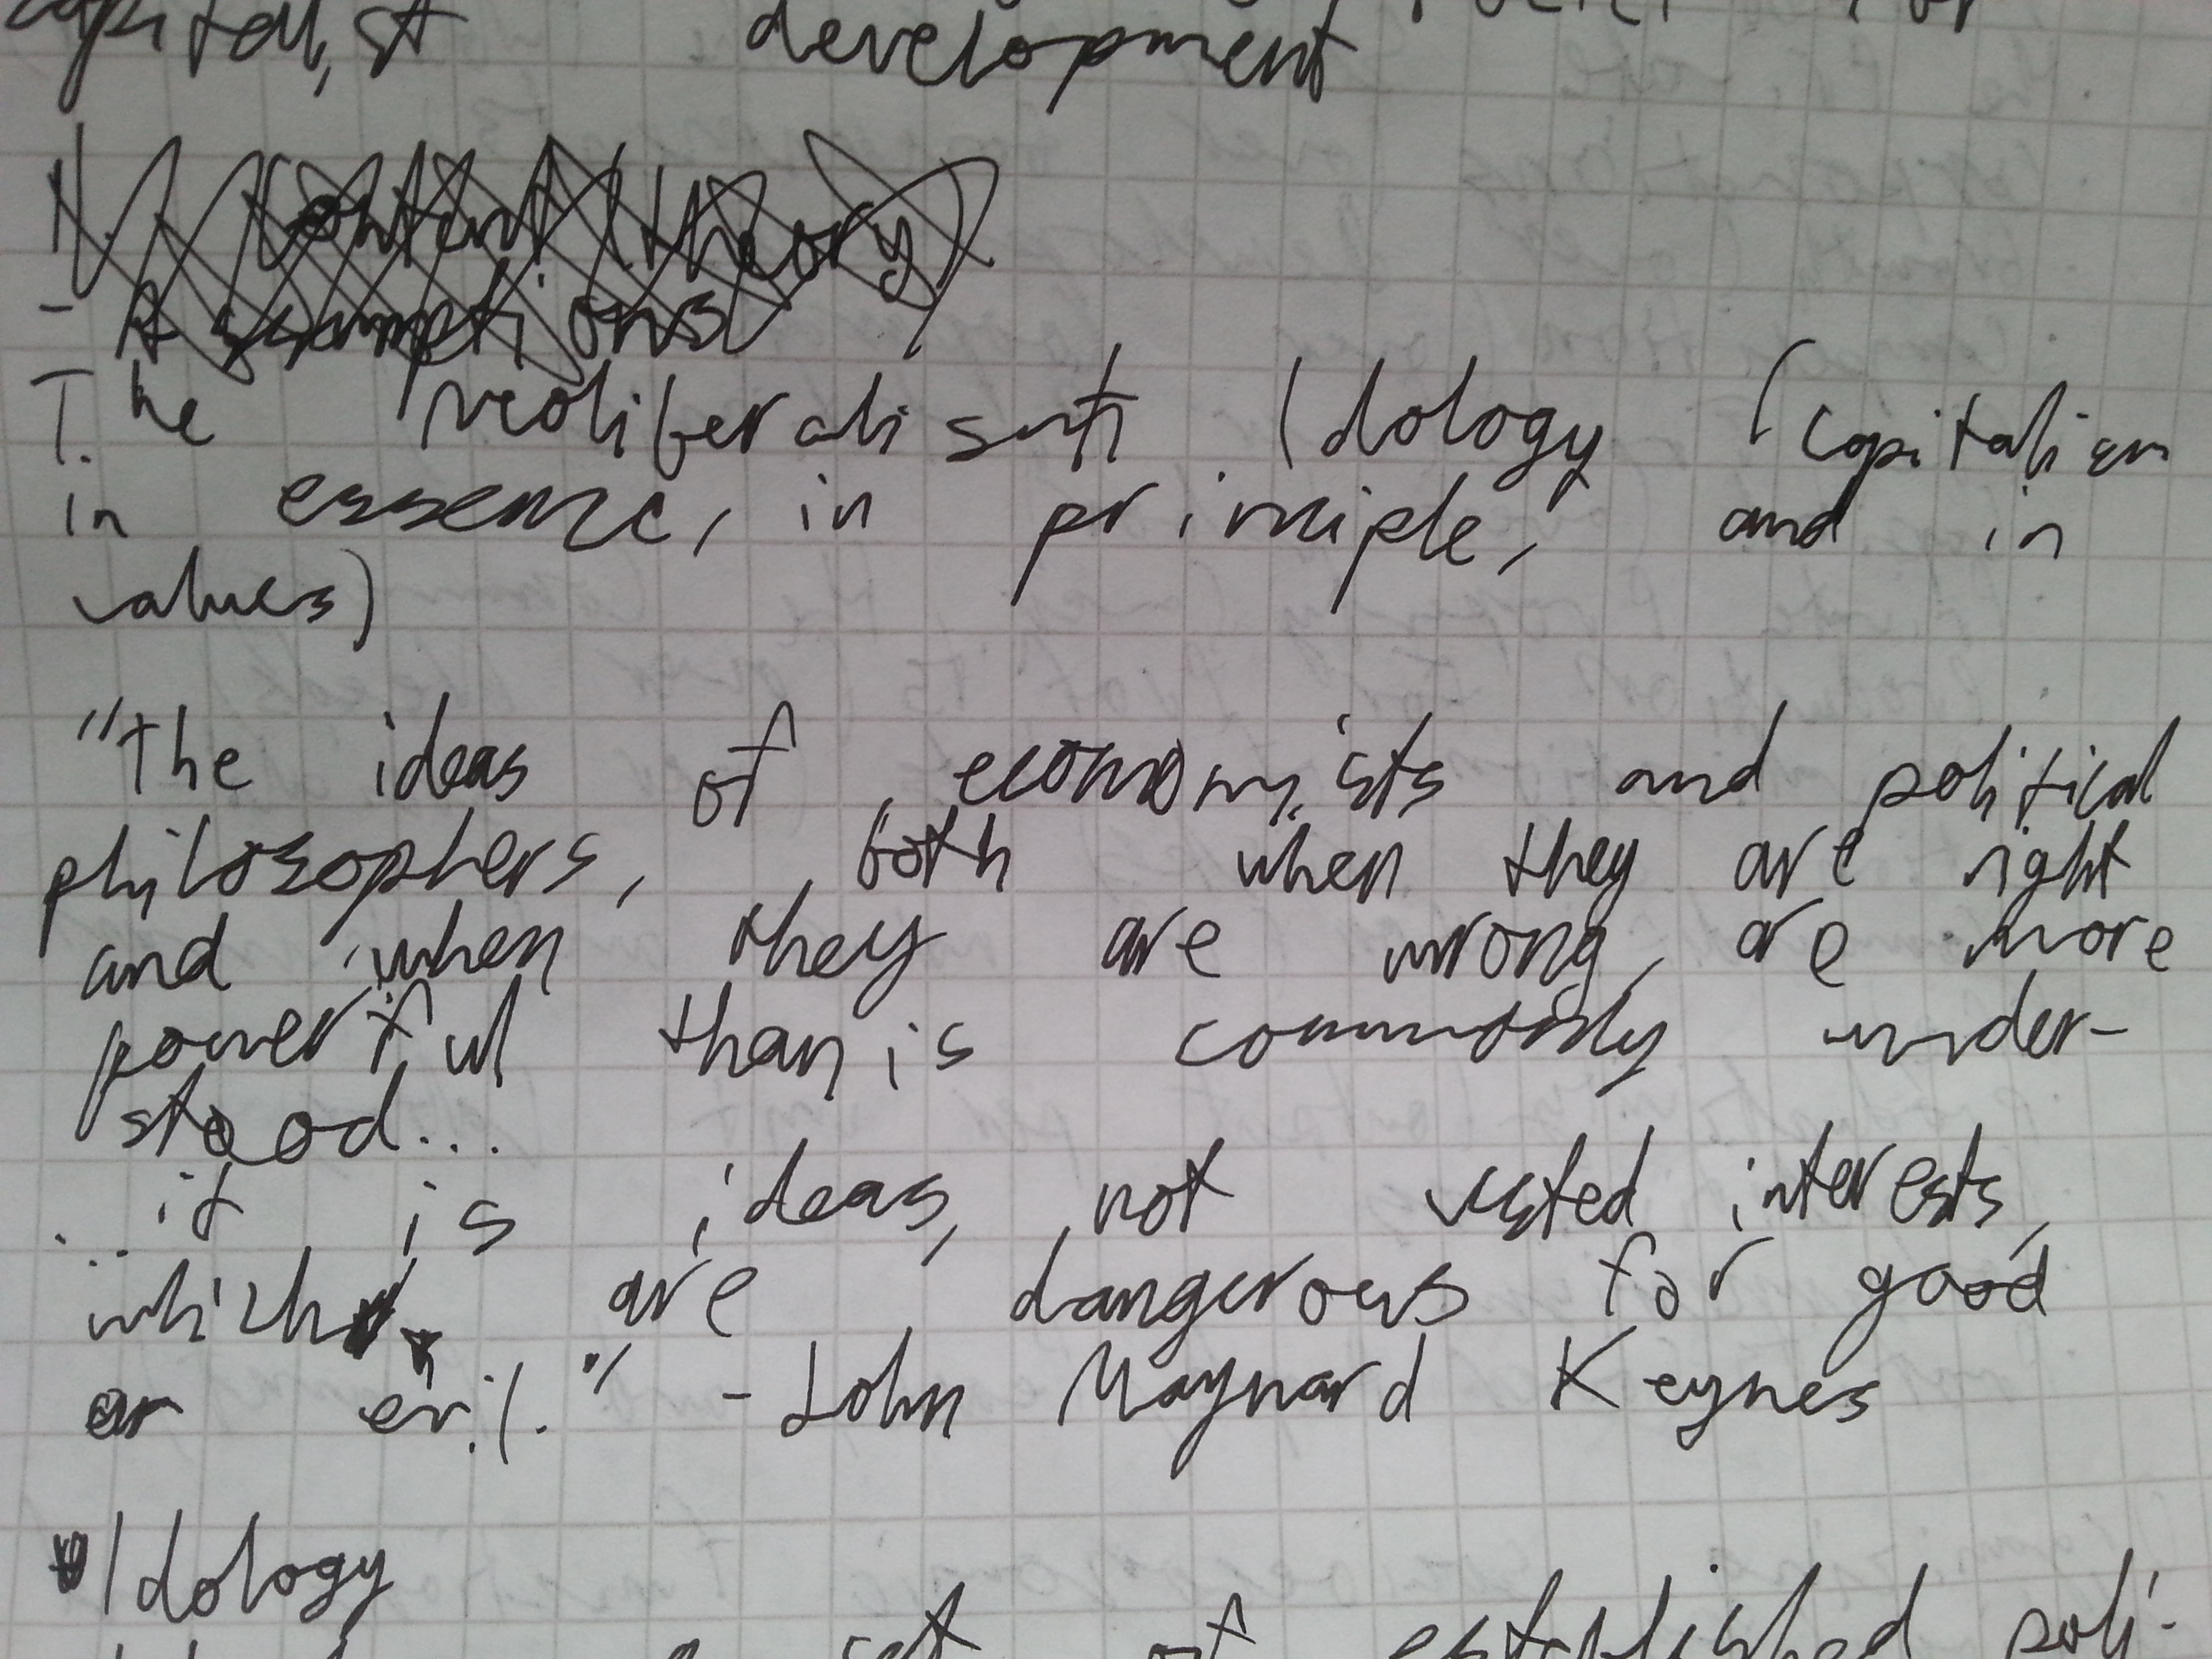 capitalist development
II. Content (theory)
- Assumptions
The neoliberalisti Idology (capitalism
in essence, in principle, and in
values)
"The ideas of economists and political
philosophers, both when they are right
and when they are wrong, are more
powerful than is commonly under-
stood...
... it is ideas, not vested interests,
which are dangerous for good
or evil." - John Maynard Keynes
Idology
set of established poli-